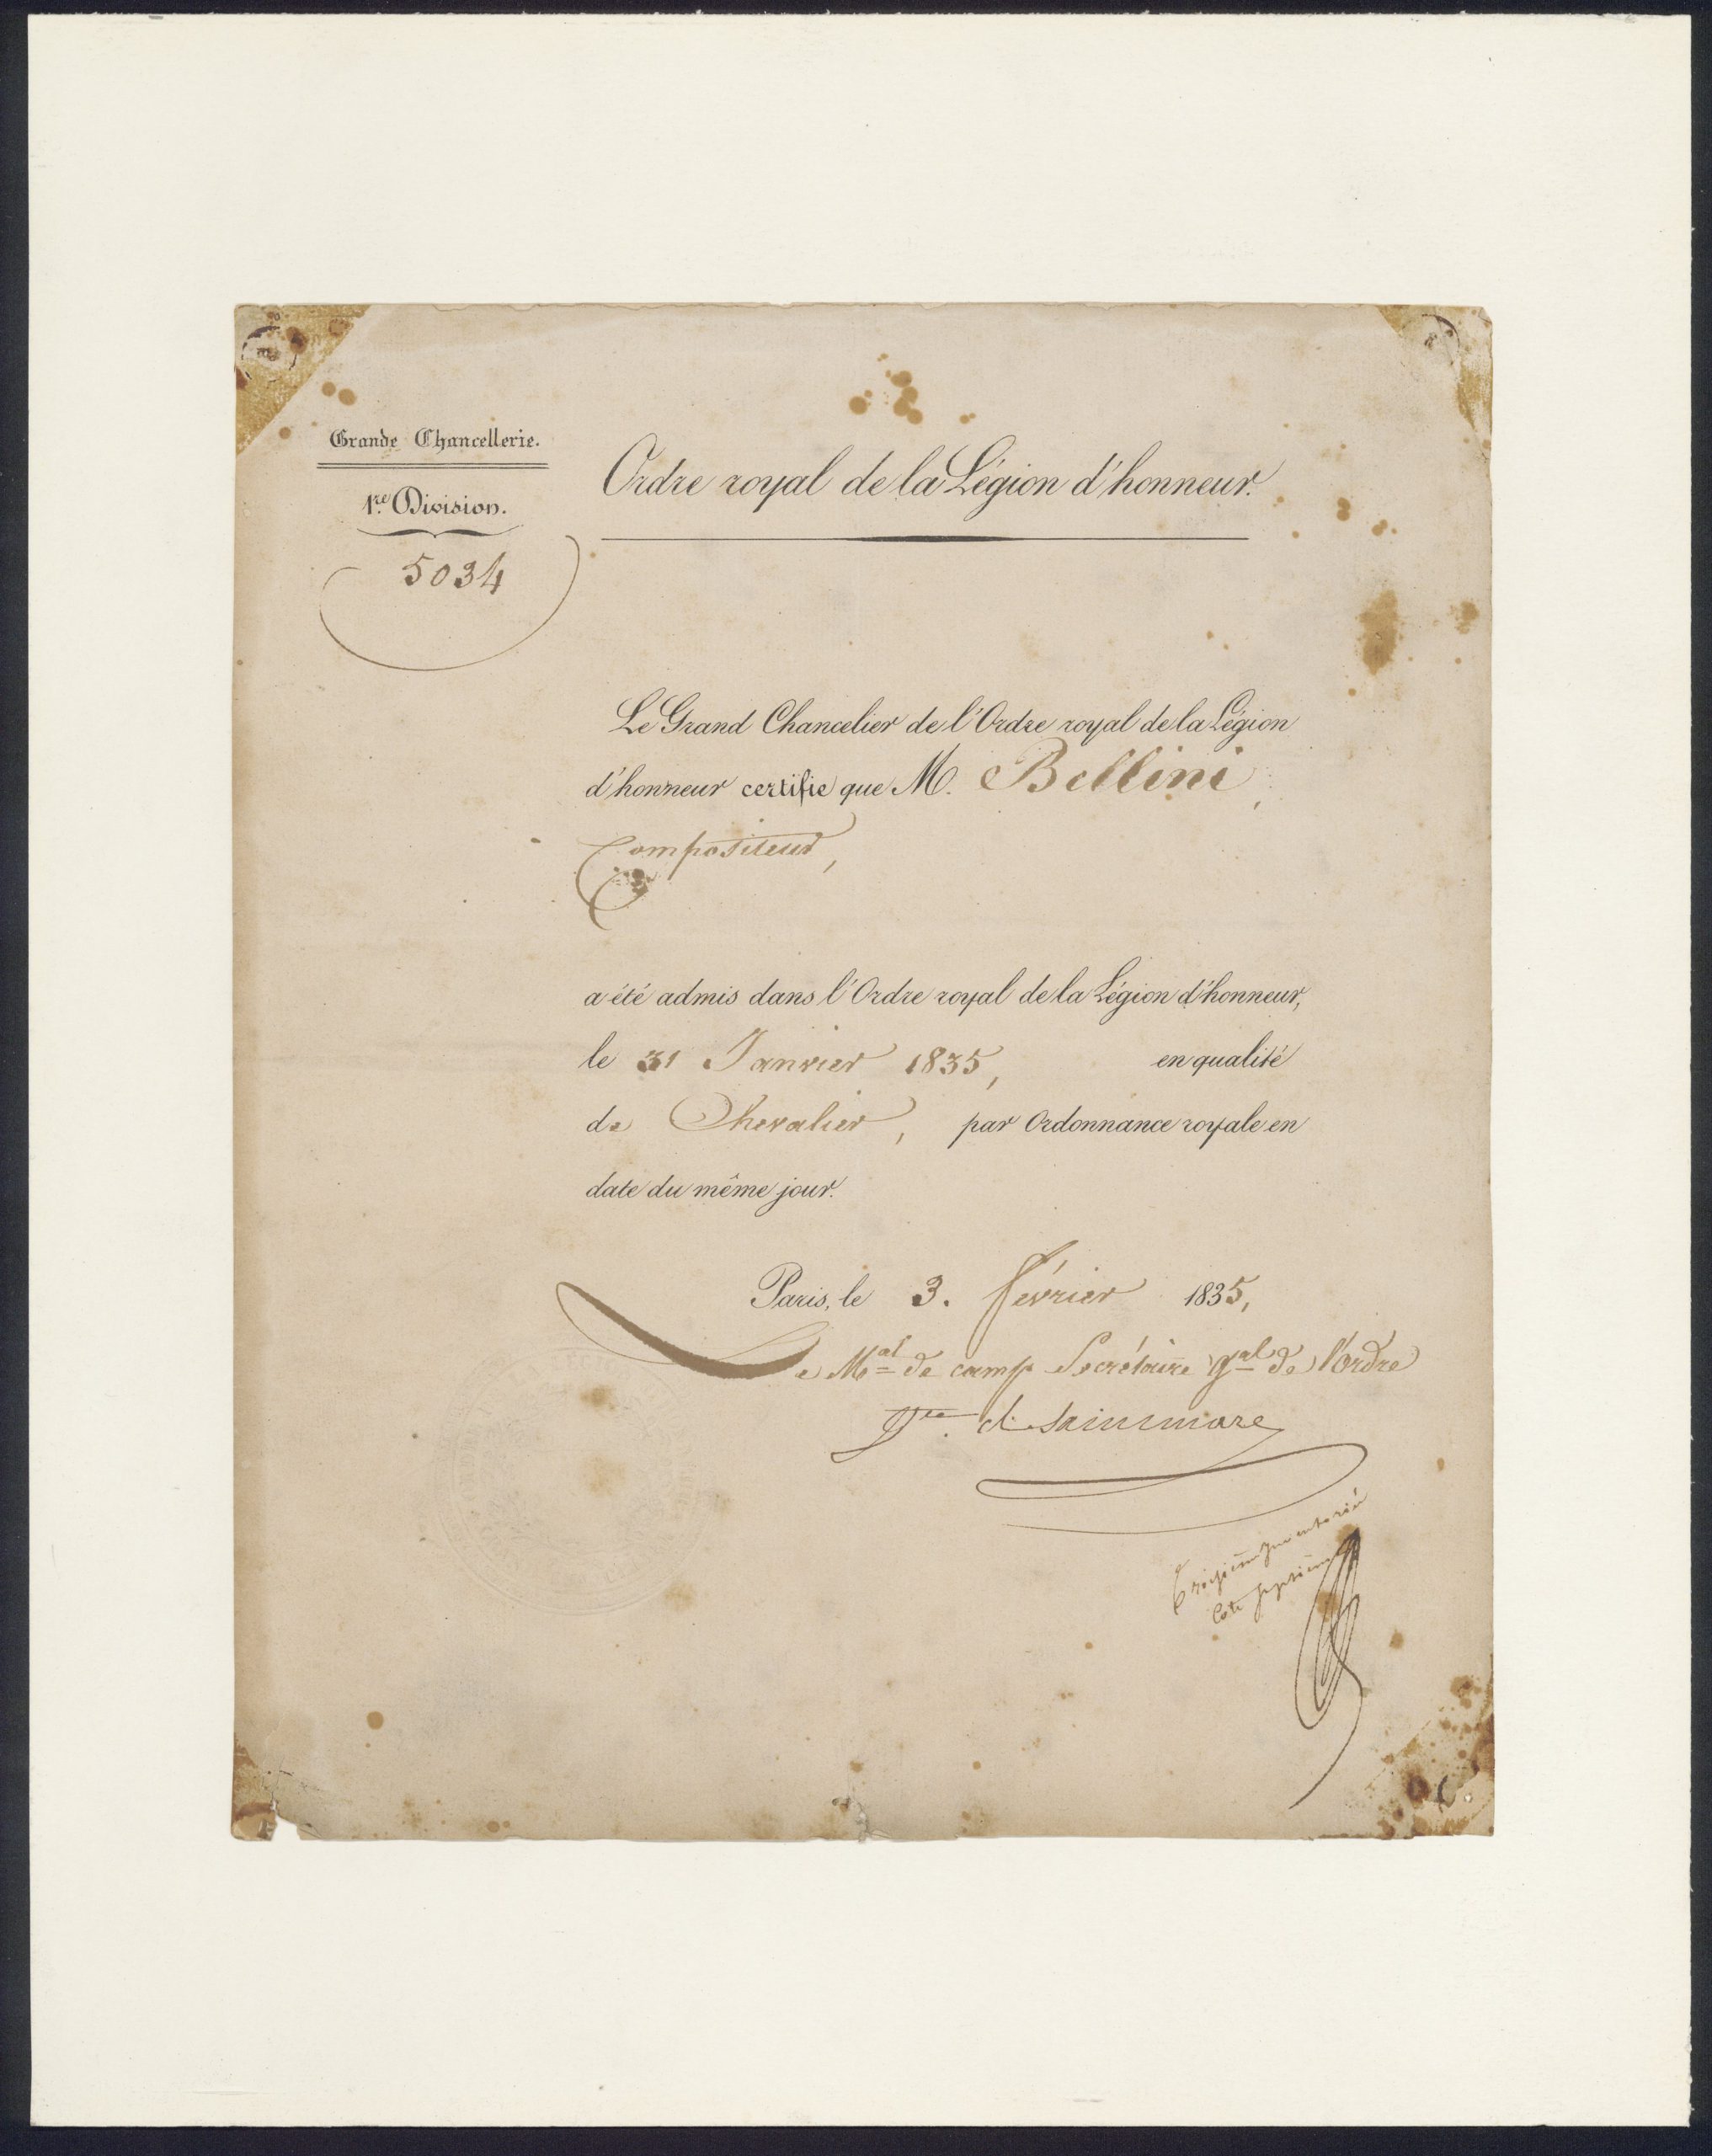 Grande Chancellerie.
1re Division.
5034
Ordre royal de la Légion d'honneur.
Le Grand Chancelier de l'Ordre royal de la Légion
d'honneur certifie que M. Bellini,
Compositeur,
a été admis dans l'Ordre royal de la Légion d'honneur,
le 31 Janvier 1835, en qualité
de Chevalier, par Ordonnance royale en
date du même jour.
Paris, le 3. février 1835,
Le Mal de camp Secrétaire gal de l'Ordre
Vte de Saint mars
Cote septième